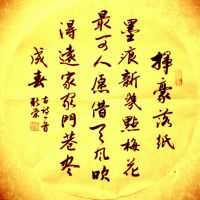 揮豪落紙
墨痕新幾點梅花
最可人願借天風吹
得遠家々門巷盡
成春
古詩一首